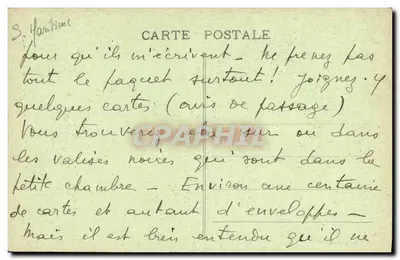 S. Maritime
CARTE POSTALE
pour qu'ils m'écrivent - Ne prenez pas
tout le paquet surtout! Joignez-y
quelques cartes (avis de passage)
Vous trouverez cela sur ou dans
les valises noires qui sont dans la
petite chambre - Environ une centaine
de cartes et autant d'enveloppes -
Mais il est bien entendu qu'il ne